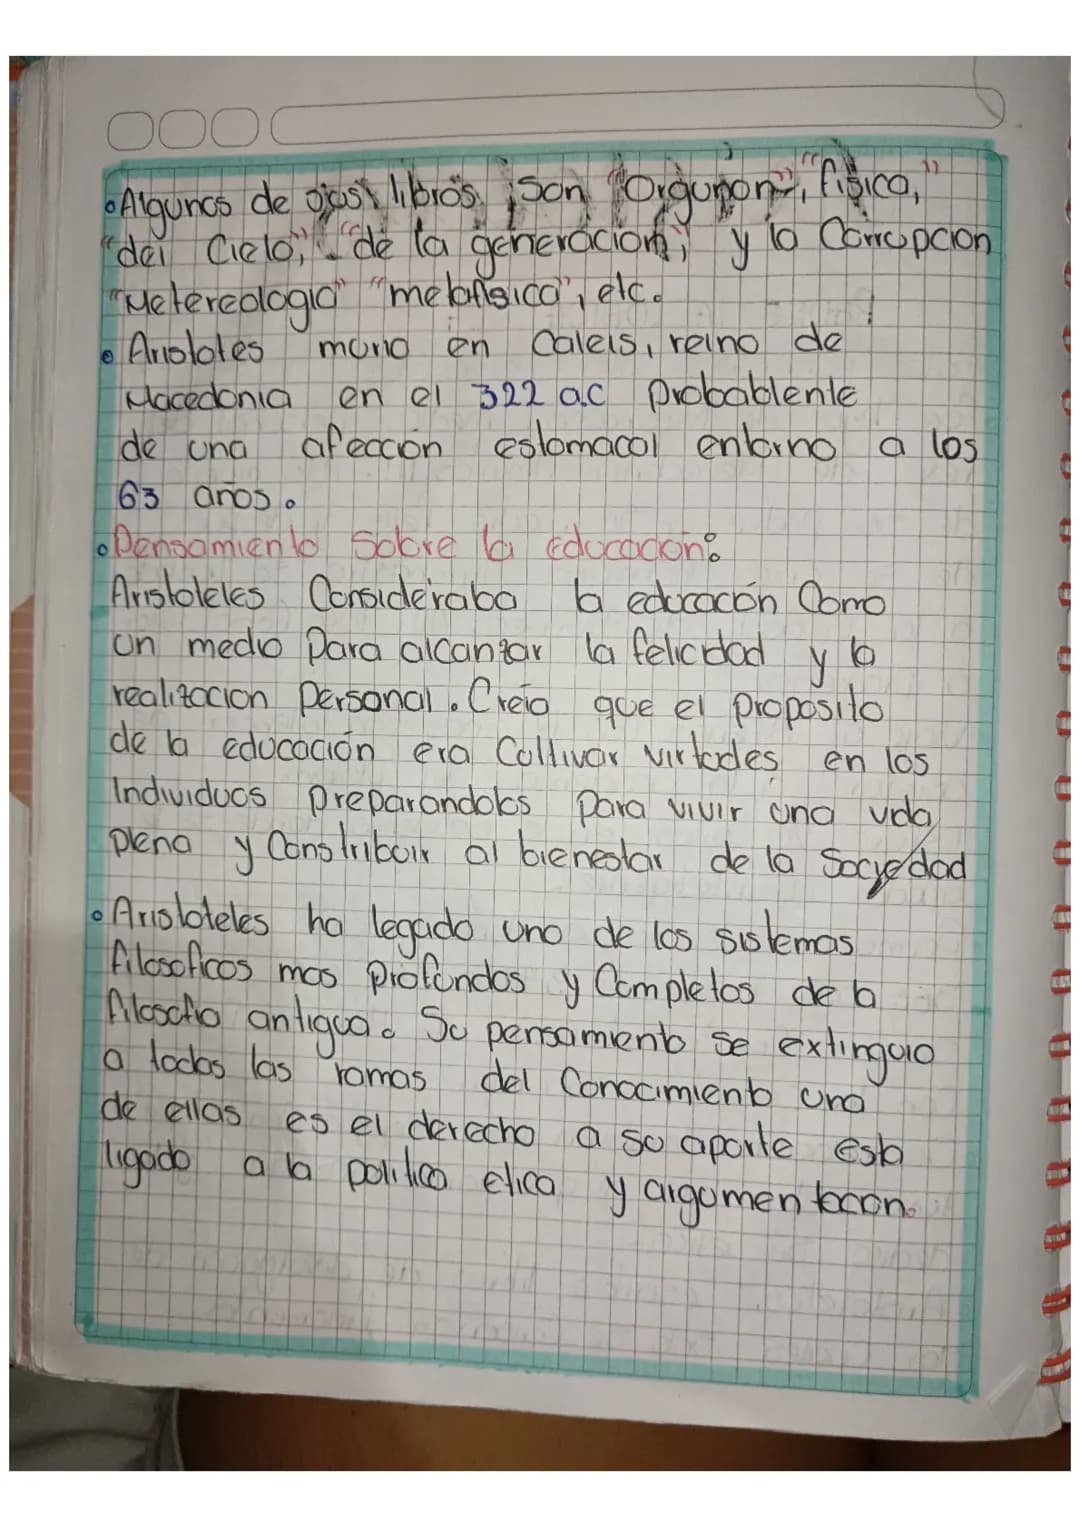 • Algunos de ojas libros son "Orgunon", "fisica,"
"del Cielo", "de la generacion", y la Corrupcion
"Metereologia" "metafisica", etc.
• Aristotes murio en Caleis, reino de
Macedonia en el 322 a.c Probablente
de una afección estomacal entorno a los
63 años.
• Pensamiento Sobre la educacion:
Aristoteles Consideraba la educación Como
un medio Para alcanzar la felicidad y la
realizacion Personal. Creia que el proposito
de la educación era Cultivar virtudes en los
Individuos preparandolos para vivir una vida
plena y Constribuir al bienestar de la Sociedad
• Aristoteles ha legado uno de los sistemas
filosoficos mas profundos y Completos de la
filosofia antigua. Su pensamiento se extinguio
a todas las ramas del Conocimiento una
de ellas es el derecho a su aporte esta
ligado a la politica etica y argumentacon.